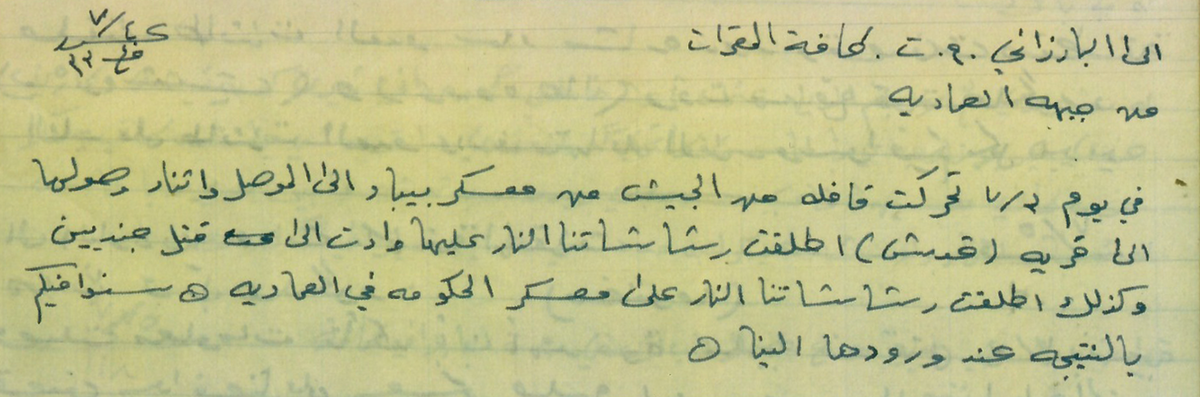 الى البارزاني . م . ت . لكافة المقرات
من جبهه العماديه
في يوم ٧/٣ تحركت قافله من الجيش من معسكر بيباد الى الموصل واثناء وصولها
الى قريه ( قدش ) اطلقت رشاشاتنا النار عليها وادت الى قتل جنديين
وكذلك اطلقت رشاشاتنا النار على معسكر الحكومه في العماديه ه سنوافيكم
بالنتيجه عند ورودها الينا ه